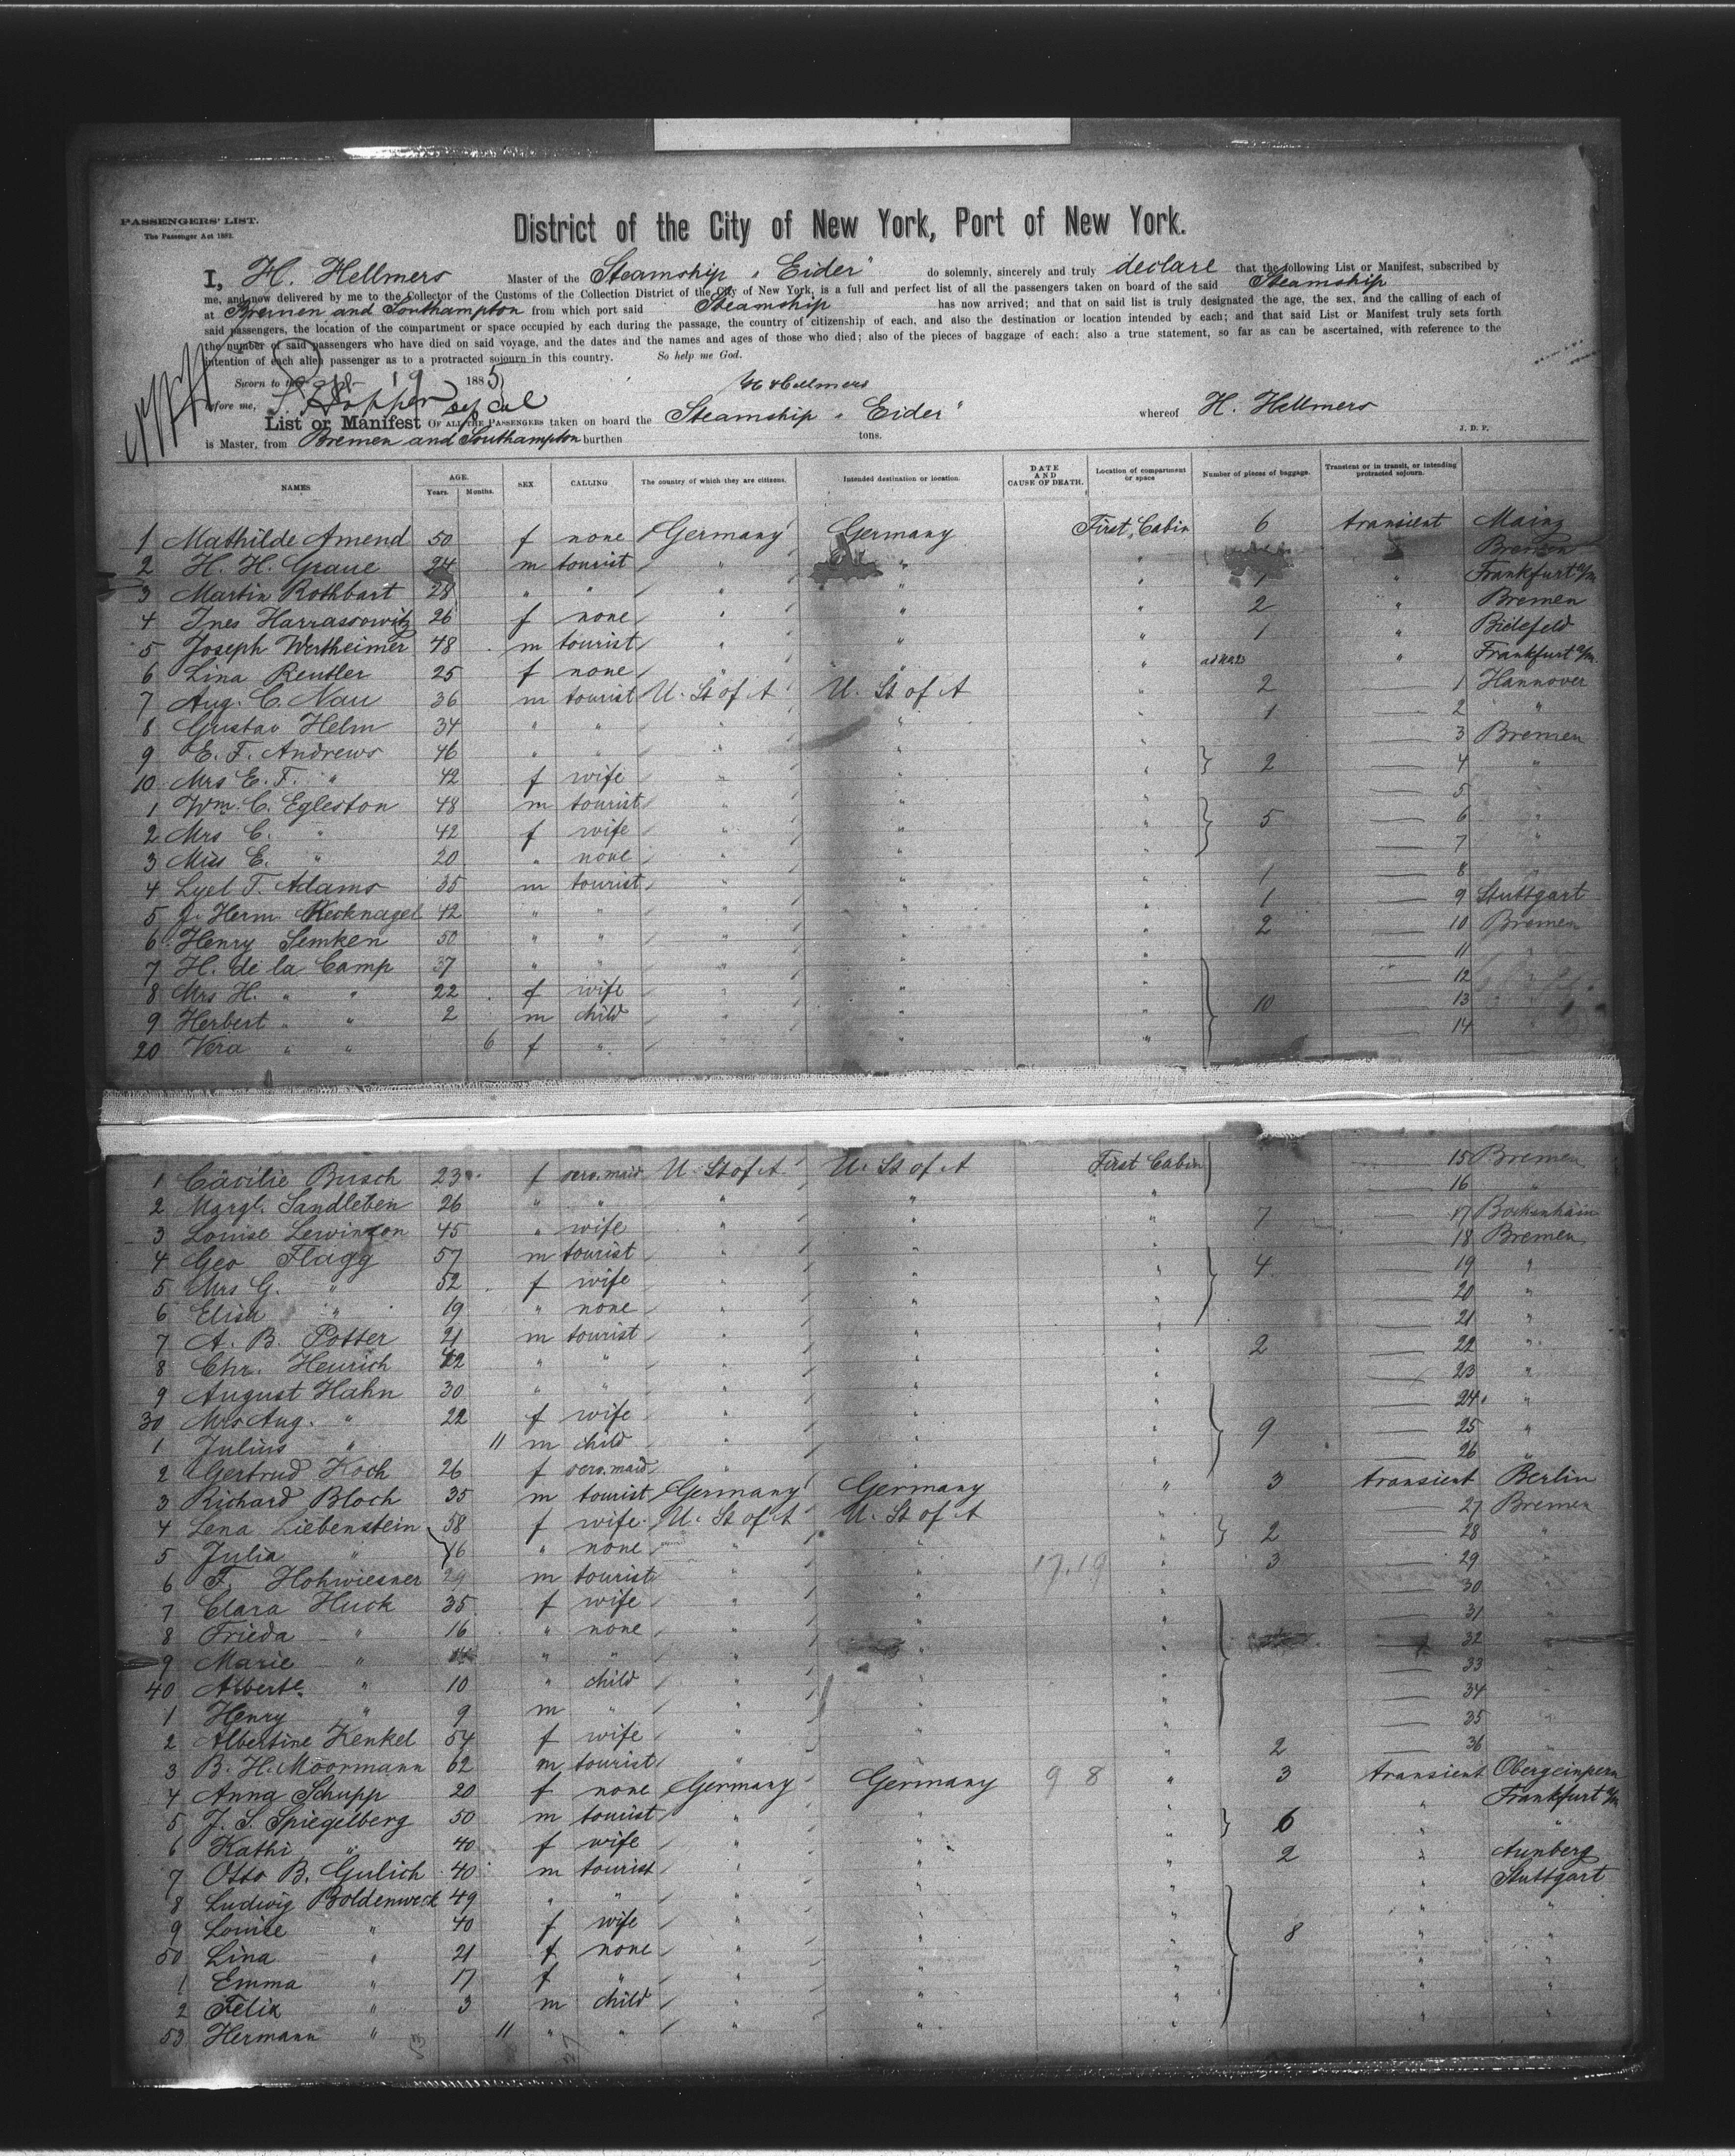 PASSENGERS' LIST.
The Passenger Act 1882.
District of the City of New York, Port of New York.
I, H. Hellmers Master of the Steamship „Eider" do solemnly, sincerely and truly declare that the following List or Manifest, subscribed by
me, and now delivered by me to the Collector of the Customs of the Collection District of the City of New York, is a full and perfect list of all the passengers taken on board of the said Steamship
at Bremen and Southampton from which port said Steamship has now arrived; and that on said list is truly designated the age, the sex, and the calling of each of
said passengers, the location of the compartment or space occupied by each during the passage, the country of citizenship of each, and also the destination or location intended by each; and that said List or Manifest truly sets forth
the number of said passengers who have died on said voyage, and the dates and the names and ages of those who died; also of the pieces of baggage of each: also a true statement, so far as can be ascertained, with reference to the
intention of each alien passenger as to a protracted sojourn in this country. So help me God.
Sworn to this 19 1885
H Hellmers
before me,
List or Manifest OF ALL THE PASSENGERS taken on board the Steamship „Eider" whereof H. Hellmers
is Master, from Bremen and Southampton burthen tons. J. D. P.
NAMES AGE. Years. Months. SEX CALLING The country of which they are citizens. Intended destination or location. DATE AND CAUSE OF DEATH. Location of compartment or space Number of pieces of baggage. Transient or in transit, or intending protracted sojourn.
1 Mathilde Amend 50 f none Germany Germany First Cabin 6 transient Mainz
2 H. H. Graue 24 m tourist " " " " Bremen
3 Martin Rothbart 28 " " " " " 1 " Frankfurt a/m
4 Ines Harrassowitz 26 f none " " " 2 " Bremen
5 Joseph Wertheimer 48 m tourist " " " 1 " Bielefeld
6 Lina Reutler 25 f none " " " " Frankfurt a/m.
7 Aug. C. Nau 36 m tourist U. St of A U. St of A " 2 — 1 Hannover
8 Gustav Helm 34 " " " " " 1 — 2 "
9 E. F. Andrews 46 " " " " " — 3 Bremen
10 Mrs E. F. " 42 f wife " " " 2 — 4 "
1 Wm. C. Egleston 48 m tourist " " " — 5 "
2 Mrs C. " 42 f wife " " " 5 — 6 "
3 Miss E. " 20 " none " " " — 7 "
4 Lyel T. Adams 35 m tourist " " " 1 — 8
5 J. Herm. Recknagel 42 " " " " " 1 — 9 Stuttgart
6 Henry Semken 50 " " " " " 2 — 10 Bremen
7 H. de la Camp 37 " " " " " — 11
8 Mrs H. " " 22 f wife " " " 12
9 Herbert " " 2 m child " " " 10 — 13
20 Vera " " 6 f " " " " — 14
1 Cäcilie Busch 23 f serv. maid U. St of A U. St of A First Cabin — 15 Bremen
2 Margt. Sandleben 26 " " " " " — 16 "
3 Louise Lewinson 45 " wife " " " 7 — 17 Bockenhain
4 Geo Flagg 57 m tourist " " " — 18 Bremen
5 Mrs G. " 52 f wife " " " 4 — 19 "
6 Elisa " 19 " none " " " — 20 "
7 A. B. Potter 21 m tourist " " " — 21 "
8 Chr. Heurich 42 " " " " " 2 — 22 "
9 August Hahn 30 " " " " " — 23 "
30 Mrs Aug. " 22 f wife " " " — 24 "
1 Julius " 11 m child " " " 9 — 25 "
2 Gertrud Koch 26 f serv. maid " " " — 26 "
3 Richard Bloch 35 m tourist Germany Germany " 3 transient Berlin
4 Lena Liebenstein 58 f wife U. St of A U. St of A " — 27 Bremen
5 Julia " 16 " none " " " 2 — 28 "
6 F. Hohwiesner 29 m tourist " " 17.19 " 3 — 29 "
7 Clara Huck 35 f wife " " " — 30 "
8 Frieda " 16 " none " " " — 31 "
9 Marie " " " " " " — 32
40 Alberte " 10 " child " " " — 33 "
1 Henry " 9 m " " " " — 34 "
2 Albertine Kenkel 54 f wife " " " — 35 "
3 B. H. Moormann 62 m tourist " " " 2 — 36 "
4 Anna Schupp 20 f none Germany Germany 9 8 " 3 transient Obergeinpern
5 J. S. Spiegelberg 50 m tourist " " " " Frankfurt a/m
6 Kathi " 40 f wife " " " 6 " "
7 Otto B. Gulich 40 m tourist " " " 2 " Arnberg
8 Ludwig Boldenweck 49 " " " " " " Stuttgart
9 Louise " 40 f wife " " " " "
50 Lina " 21 f none " " " 8 " "
1 Emma " 17 f " " " " " "
2 Felix " 3 m child " " " " "
53 Hermann " 11 " " " " " " "
53